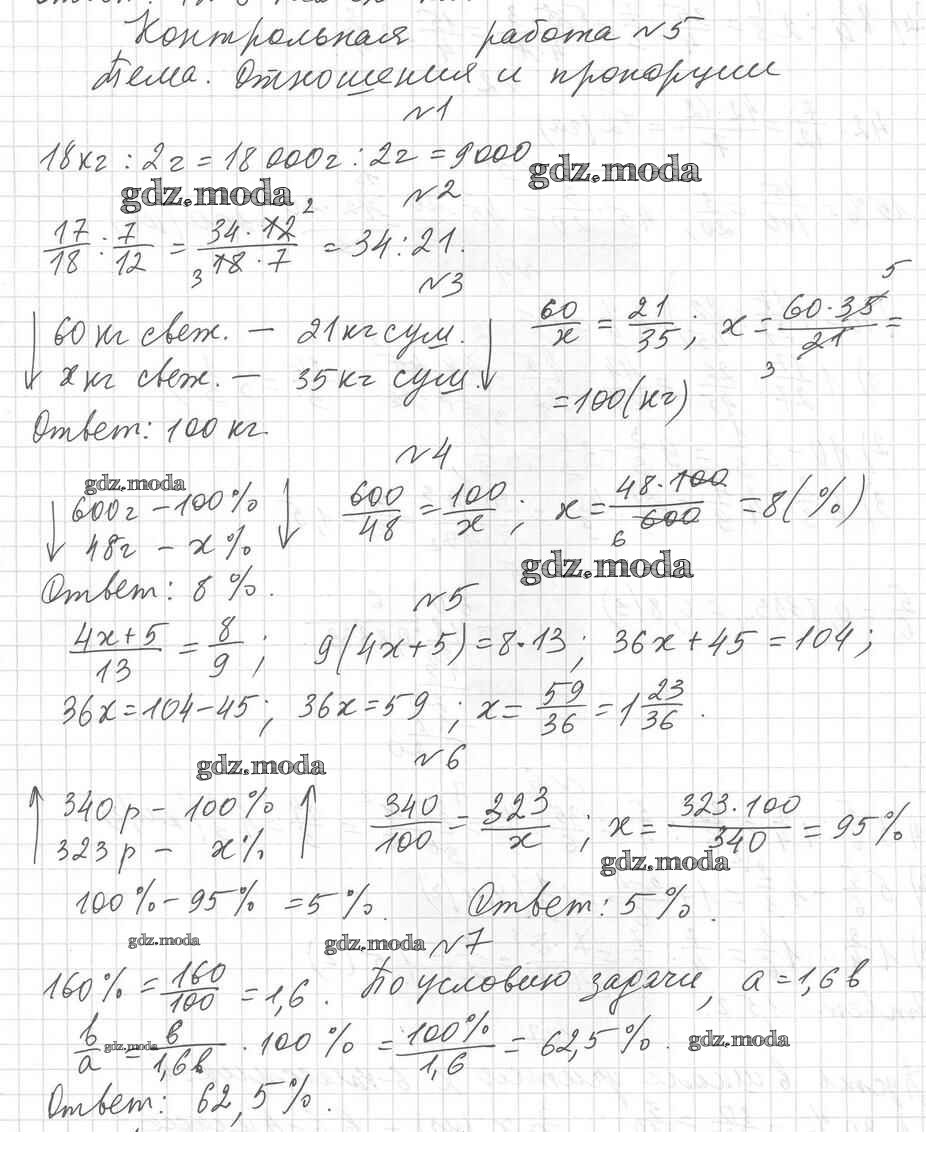 Контрольная работа №5
Тема. Отношения и пропорции
№1
18кг : 2г = 18 000г : 2г = 9000
gdz.moda
gdz.moda
№2
17/18 : 7/12 = 34·12/18·7 = 34:21.
2
3
№3
60 кг свеж. — 21 кг суш.
x кг свеж. — 35 кг суш.
60/x = 21/35; x = 60·35/21 =
5
3
= 100 (кг)
Ответ: 100 кг.
№4
gdz.moda
600г – 100%
48г – x%
600/48 = 100/x; x = 48·100/600 = 8 (%)
6
gdz.moda
Ответ: 8 %.
№5
4x+5/13 = 8/9; 9(4x+5) = 8·13; 36x + 45 = 104;
36x = 104 – 45; 36x = 59; x = 59/36 = 1 23/36.
gdz.moda
№6
340 р – 100%
323 р – x%
340/100 = 323/x; x = 323·100/340 = 95%
gdz.moda
100% – 95% = 5%. Ответ: 5%.
gdz.moda
gdz.moda
№7
160% = 160/100 = 1,6. По условию задачи, a = 1,6 в
b/a = в/1,6в · 100% = 100%/1,6 = 62,5%.
gdz.moda
gdz.moda
Ответ: 62,5%.